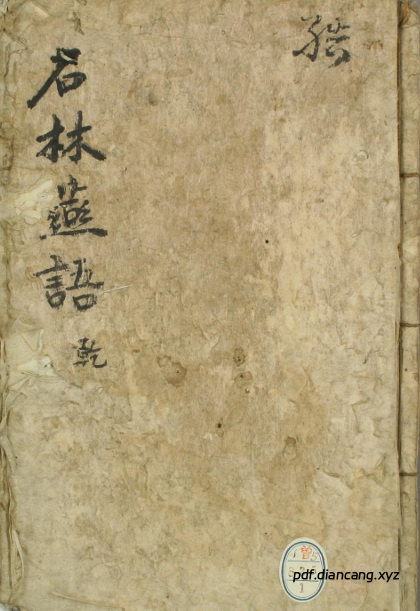 石林燕語
乾
pdf.diancang.xyz